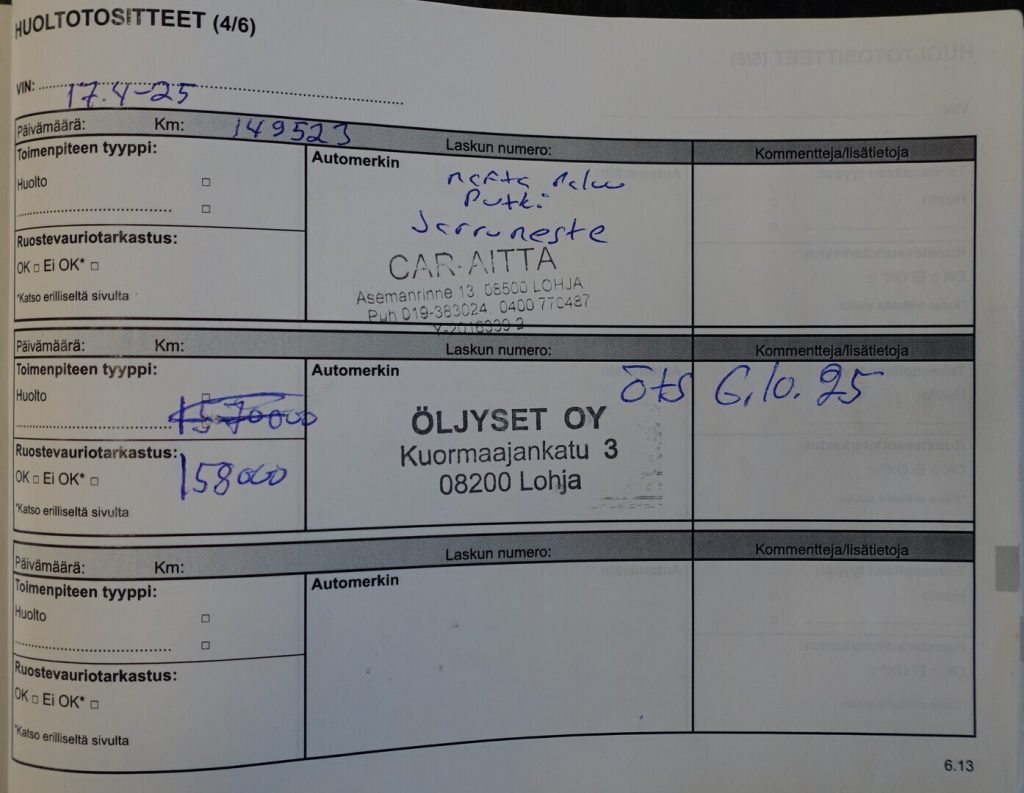 HUOLTOTOSITTEET (4/6)
VIN: 17.4-25
Päivämäärä: Km: 149523 Laskun numero: Kommentteja/lisätietoja
Toimenpiteen tyyppi: Automerkin
Huolto □
□
Putki
Jarruneste
Ruostevauriotarkastus:
OK □ Ei OK* □
*Katso erilliseltä sivulta
CAR-AITTA
Asemanrinne 13, 08500 LOHJA
Puh 019-383024, 0400 770487
Päivämäärä: Km: Laskun numero: Kommentteja/lisätietoja
Toimenpiteen tyyppi: Automerkin
öts 6.10.25
Huolto □
ÖLJYSET OY
Kuormaajankatu 3
08200 Lohja
Ruostevauriotarkastus:
OK □ Ei OK* □ 158000
*Katso erilliseltä sivulta
Päivämäärä: Km: Laskun numero: Kommentteja/lisätietoja
Toimenpiteen tyyppi: Automerkin
Huolto □
□
Ruostevauriotarkastus:
OK □ Ei OK* □
*Katso erilliseltä sivulta
6.13